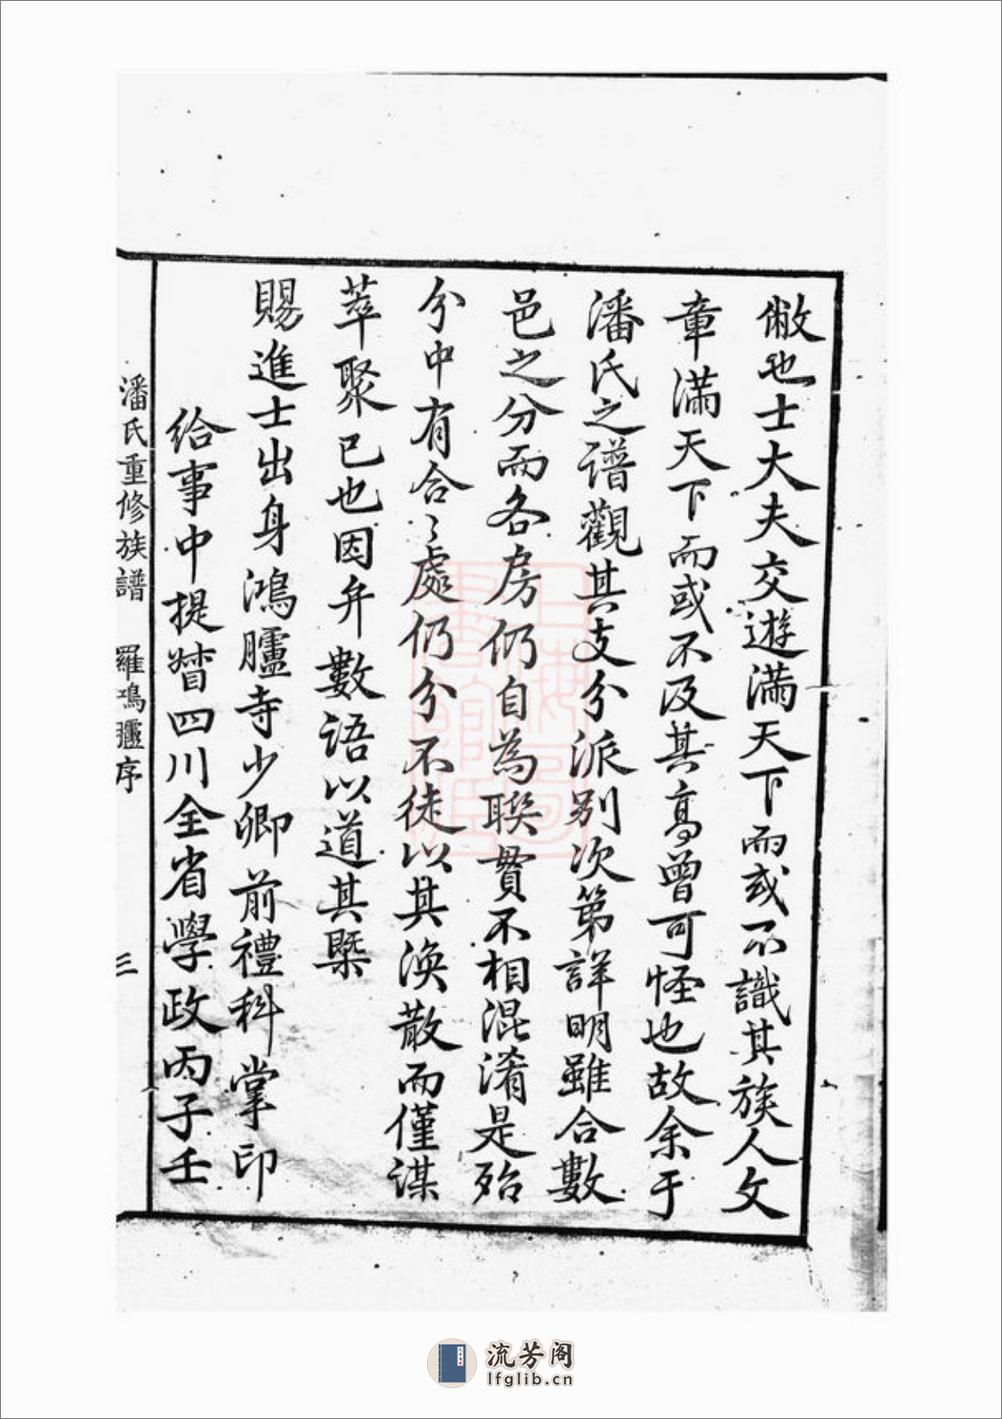 敝也士大夫交遊滿天下而或不識其族人文
章滿天下而或不及其高曾可怪也故余于
潘氏之譜觀其支分派別次第詳明雖合數
邑之分而各房仍自為聯貫不相混淆是殆
分中有合〻處仍分不徒以其渙散而僅謀
萃聚已也因弁數語以道其槩
賜進士出身鴻臚寺少卿前禮科掌印
給事中提督四川全省學政丙子壬
潘氏重修族譜 羅鴻臚序 三
流芳阁
lfglib.cn